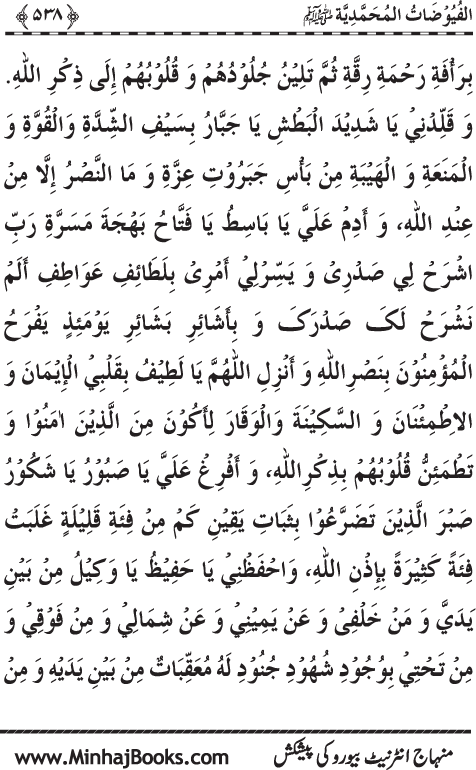 الفُيُوْضَاتُ المُحَمَّدِيَّة ﷺ ﴿۵۳۸﴾
بِرَأْفَةِ رَحْمَةِ رِقَّةِ ثُمَّ تَلِيْنُ جُلُوْدُهُمْ وَ قُلُوْبُهُمْ إِلَى ذِكْرِ اللهِ.
وَ قَلِّدْنِيْ يَا شَدِيْدَ الْبَطْشِ يَا جَبَّارُ بِسَيْفِ الشِّدَّةِ وَالْقُوَّةِ وَ
الْمَنَعَةِ وَ الْهَيْبَةِ مِنْ بَأْسِ جَبَرُوْتِ عِزَّةِ وَ مَا النَّصْرُ إِلَّا مِنْ
عِنْدِ اللهِ، وَ أَدِمْ عَلَيَّ يَا بَاسِطُ يَا فَتَّاحُ بَهْجَةَ مَسَرَّةِ رَبِّ
اشْرَحْ لِي صَدْرِیْ وَ يَسِّرْلِيْ أَمْرِیْ بِلَطَائِفِ عَوَاطِفِ أَلَمْ
نَشْرَحْ لَکَ صَدْرَکَ وَ بِأَشَائِرِ بَشَائِرِ يَوْمَئِذٍ يَفْرَحُ
الْمُؤْمِنُوْنَ بِنَصْرِاللهِ وَ أَنْزِلِ اللّٰهُمَّ يَا لَطِيْفُ بِقَلْبِيْ الْإِيْمَانَ وَ
الاِطْمِئْنَانَ وَ السَّكِيْنَةَ وَالْوَقَارَ لِأَكُوْنَ مِنَ الَّذِيْنَ اٰمَنُوْا وَ
تَطْمَئِنُّ قُلُوْبُهُمْ بِذِكْرِاللهِ، وَ أَفْرِغْ عَلَيَّ يَا صَبُوْرُ يَا شَكُوْرُ
صَبْرَ الَّذِيْنَ تَضَرَّعُوْا بِثَبَاتِ يَقِيْنِ كَمْ مِنْ فِئَةٍ قَلِيْلَةٍ غَلَبَتْ
فِئَةً كَثِيْرَةً بِإِذْنِ اللهِ، وَاحْفَظْنِيْ يَا حَفِيْظُ يَا وَكِيْلُ مِنْ بَيْنِ
يَدَيَّ وَ مَنْ خَلْفِیْ وَ عَنْ يَمِيْنِيْ وَ عَنْ شِمَالِيْ وَ مِنْ فَوْقِيْ وَ
مِنْ تَحْتِيْ بِوُجُوْدِ شُهُوْدِ جُنُوْدِ لَهُ مُعَقِّبَاتٌ مِنْ بَيْنِ يَدَيْهِ وَ مِنْ
منہاج انٹرنیٹ بیورو کی پیشکش www.MinhajBooks.com